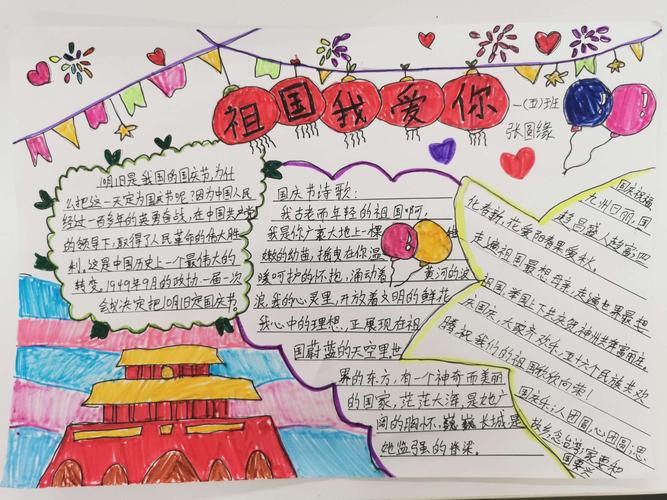 祖国我爱你
一(五)班
张圆缘
10月1日是我国的国庆节,为什
么把这一天定为国庆节呢?因为中国人民
经过一百多年的英勇奋战,在中国共产党
的领导下,取得了人民革命的伟大胜
利。这是中国历史上一个最伟大的
转变。1949年9月的政协一届一次
会议决定把10月1日定国庆节。
国庆节诗歌:
我古老而年轻的祖国啊,
我是你广袤大地上一棵
嫩的幼苗,摇曳在你温
暖呵护的怀抱,涌动着黄河的波
浪,我的心灵里,开放着文明的鲜花
我心中的理想,正展现在祖
国蔚蓝的天空里世
界的东方,有一个神奇而美丽
的国家,茫茫大海是她广
阔的胸怀,巍巍长城是
她监强的脊梁。
国庆祝福
九州日丽,国
化春新,花爱阳春果爱秋。
走遍祖国最想
祖国举国上下共庆贺神州共奔富丽庄。
庆国庆,大家齐欢乐,五十六个民族共欢
腾,祝我们的祖国欣欣向荣!
国庆乐;人团圆,心团圆;思